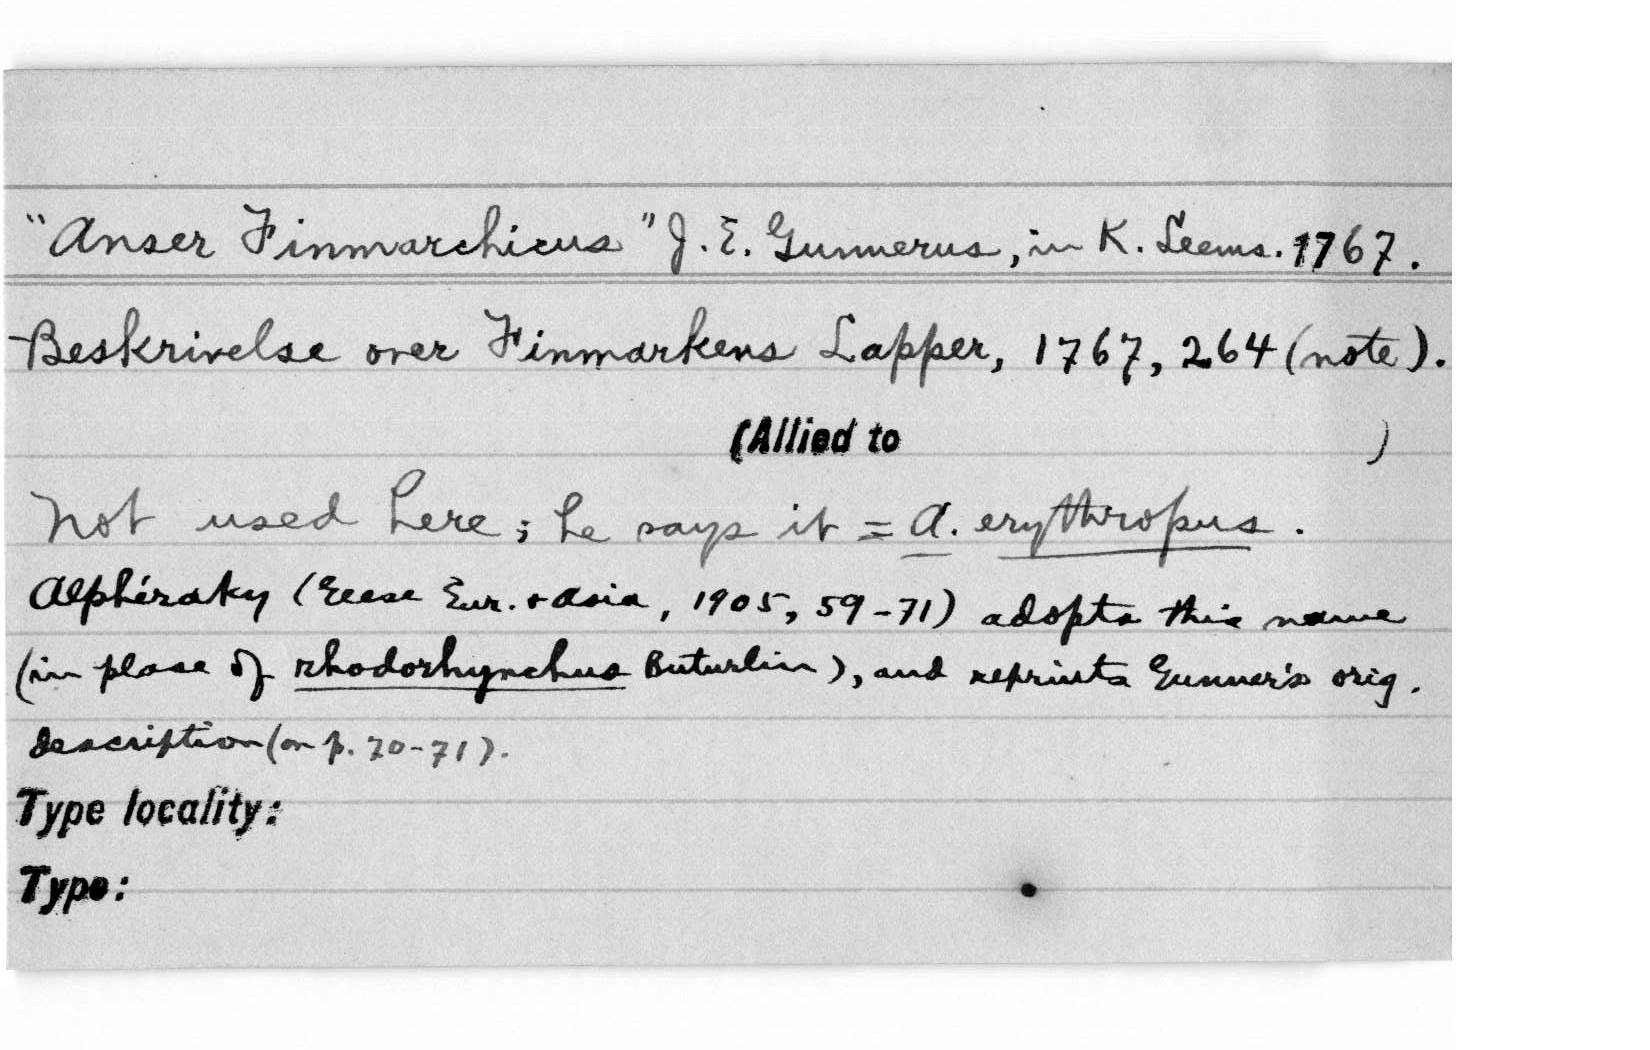 "Anser Finmarchicus" J. E. Gunnerus, in K. Leems. 1767.
Beskrivelse over Finmarkens Lapper, 1767, 264 (note).
(Allied to )
Not used here; he says it = A. erythropus.
Alphéraky (Geese Eur. + Asia, 1905, 59-71) adopts this name
(in place of rhodorhynchus Buturlin), and reprints Gunner's orig.
description (on p. 70-71).
Type locality:
Type: